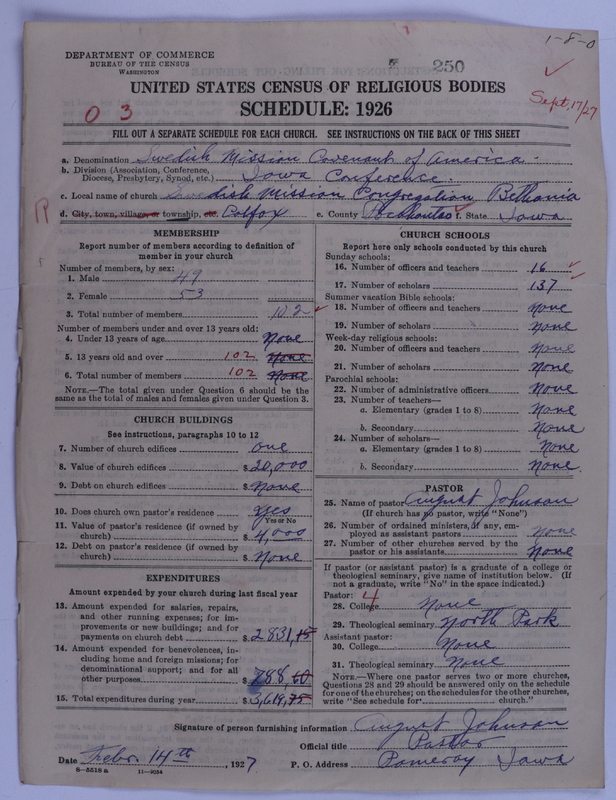 1-8-0
DEPARTMENT OF COMMERCE
BUREAU OF THE CENSUS
WASHINGTON
250
UNITED STATES CENSUS OF RELIGIOUS BODIES
SCHEDULE: 1926
Sept. 17/27
0 3
FILL OUT A SEPARATE SCHEDULE FOR EACH CHURCH. SEE INSTRUCTIONS ON THE BACK OF THIS SHEET
a. Denomination Swedish Mission Covenant of America
b. Division (Association, Conference, Diocese, Presbytery, Synod, etc.) Iowa Conference
c. Local name of church Swedish Mission Congregation Bethania
R d. City, town, village, or township, etc. Colfax e. County Pocahontas f. State Iowa
MEMBERSHIP
Report number of members according to definition of
member in your church
Number of members, by sex:
1. Male 49
2. Female 53
3. Total number of members 102
Number of members under and over 13 years old:
4. Under 13 years of age None
5. 13 years old and over 102 None
6. Total number of members 102 None
NOTE.—The total given under Question 6 should be the
same as the total of males and females given under Question 3.
CHURCH BUILDINGS
See instructions, paragraphs 10 to 12
7. Number of church edifices one
8. Value of church edifices $20,000
9. Debt on church edifices $None
10. Does church own pastor's residence? Yes
Yes or No
11. Value of pastor's residence (if owned by
church) $4,000
12. Debt on pastor's residence (if owned by
church) $None
EXPENDITURES
Amount expended by your church during last fiscal year
13. Amount expended for salaries, repairs,
and other running expenses; for im-
provements or new buildings; and for
payments on church debt $2831,15
14. Amount expended for benevolences, in-
cluding home and foreign missions; for
denominational support; and for all
other purposes $788,60
15. Total expenditures during year $3,619,75
CHURCH SCHOOLS
Report here only schools conducted by this church
Sunday schools:
16. Number of officers and teachers 16
17. Number of scholars 137
Summer vacation Bible schools:
18. Number of officers and teachers None
19. Number of scholars None
Week-day religious schools:
20. Number of officers and teachers None
21. Number of scholars None
Parochial schools:
22. Number of administrative officers None
23. Number of teachers—
a. Elementary (grades 1 to 8) None
b. Secondary None
24. Number of scholars—
a. Elementary (grades 1 to 8) None
b. Secondary None
PASTOR
25. Name of pastor August Johnson
(If church has no pastor, write "None")
26. Number of ordained ministers, if any, em-
ployed as assistant pastors None
27. Number of other churches served by the
pastor or his assistants None
If pastor (or assistant pastor) is a graduate of a college or
theological seminary, give name of institution below. (If
not a graduate, write "No" in the space indicated.)
Pastor: 4
28. College None
29. Theological seminary North Park
Assistant pastor:
30. College None
31. Theological seminary None
NOTE.—Where one pastor serves two or more churches,
Questions 28 and 29 should be answered only on the schedule
for one of the churches; on the schedules for the other churches,
write "See schedule for church."
Signature of person furnishing information August Johnson
Official title Pastor
Date Febr. 14th, 1927 P. O. Address Pomeroy Iowa
8-5518 a 11-9034